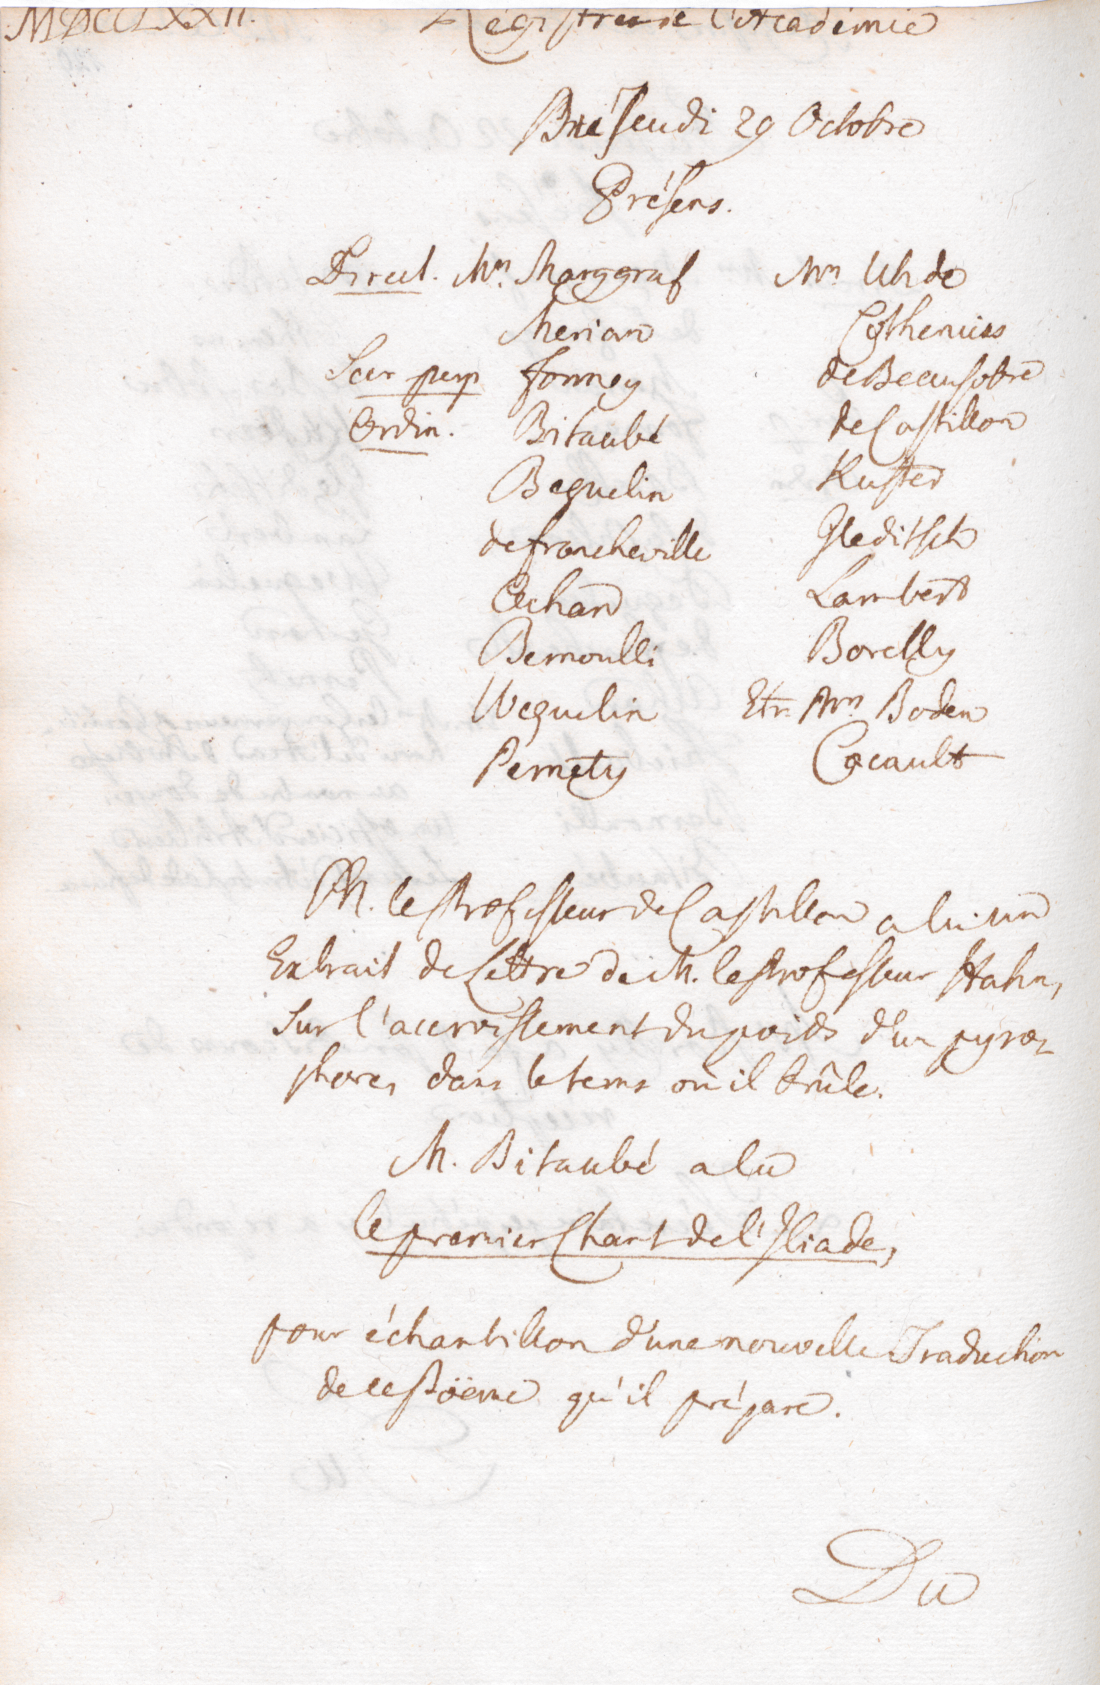 MDCCLXXII. Régistres de l'Académie
Du Jeudi 29 Octobre
Présens.
Direct. Mrs. Marggraf Mrs Uhde
Merian Cothenius
Secr perp Formey de Beausobre
Ordin. Bitaubé de Castillon
Beguelin Kuster
de Francheville Gleditsch
Achard Lambert
Bernoulli Borelly
Weguelin Etr. Mrs. Boden
Pernety Cacault
M. le Professeur de Castillon a lu un
Extrait de Lettre de M. le Professeur Hahn,
sur l'accroissement du poids d'un pyro-
phore, dans le tems où il brûle.
M. Bitaubé a lu
le premier Chant de l'Iliade,
pour échantillon d'une nouvelle Traduction
de ce Poëme qu'il prépare.
Du